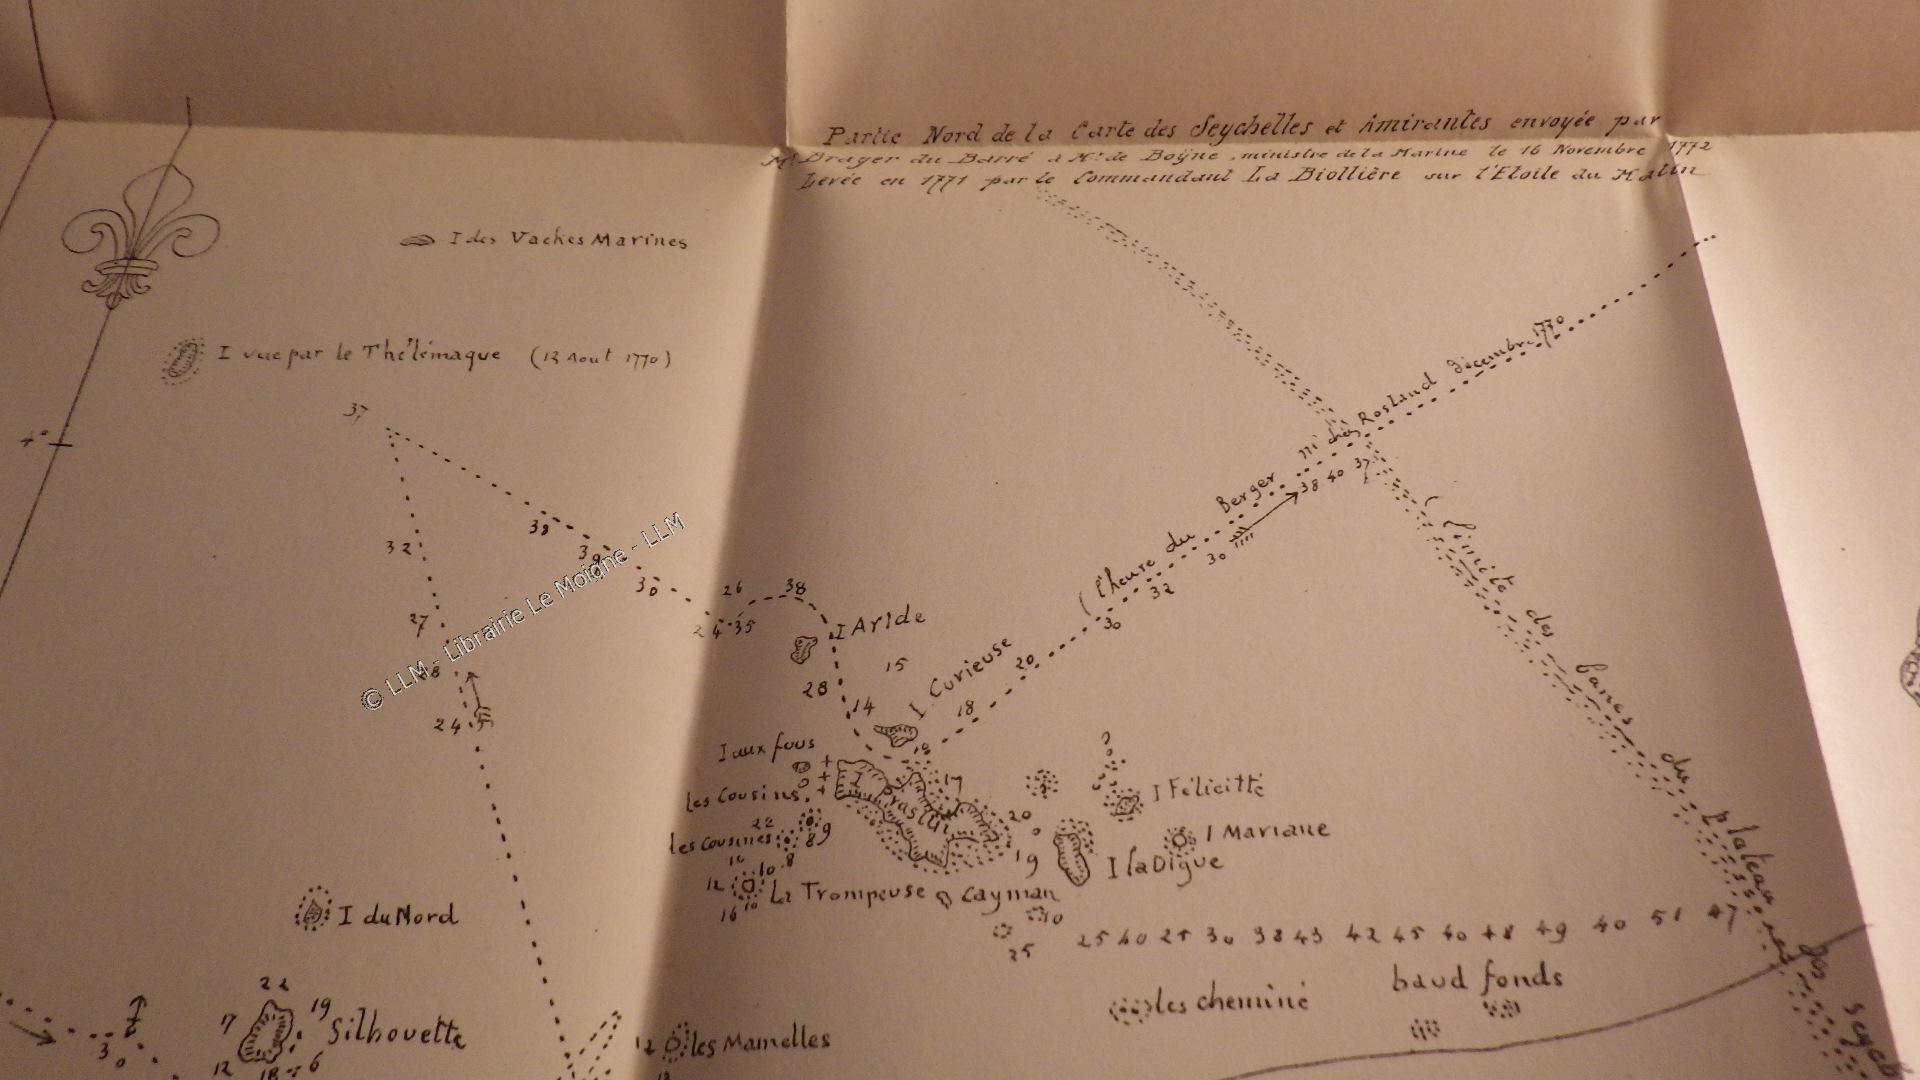 Partie Nord de la Carte des Seychelles et Amirantes envoyée par
Mr Brayer du Barré à Mr de Boÿne, ministre de la Marine le 16 Novembre 1772
Levée en 1771 par le Commandant La Biollière sur l'Etoile du Matin
I des Vaches Marines
I vue par le Thélémaque (12 Aout 1770)
4°
37
décembre 1770
Rosland
(l'heure du Berger
38 40 37
(limite des bancs du plateau
des seych
32
38
39
30
30
32
30
27
26
38
24 35
I Aride
15
28
I Curieuse
20
18
14
© LLM - Librairie Le Moigne - LLM
24
I aux fous
les Cousins
22
les Cousines
8
9
8
10
12
16
10
I Praslin
17
20
19
I Félicitté
I Mariane
I la Digue
La Trompeuse
Cayman
10
25
25 40 25 30 38 43 42 45 40 48 49 40 51 47
I du Nord
22
19
17
Silhouette
12
18
6
30
12
les Mamelles
les cheminé
baud fonds